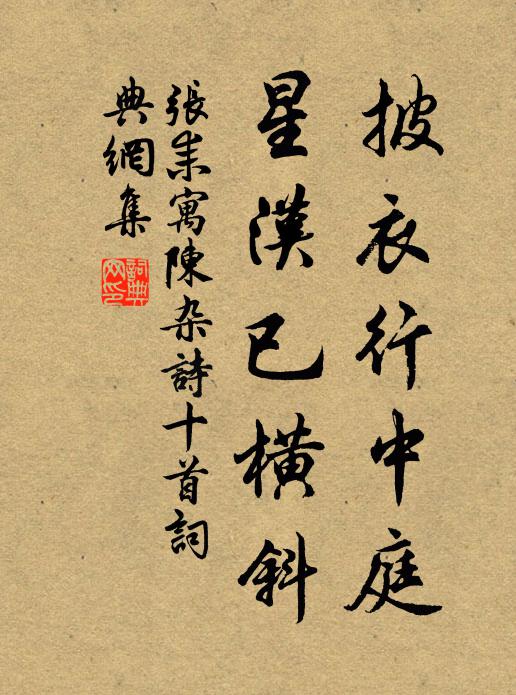 披衣行中庭
星漢已橫斜
張耒寓陳杂詩十首詞
典網集
詞典
网印